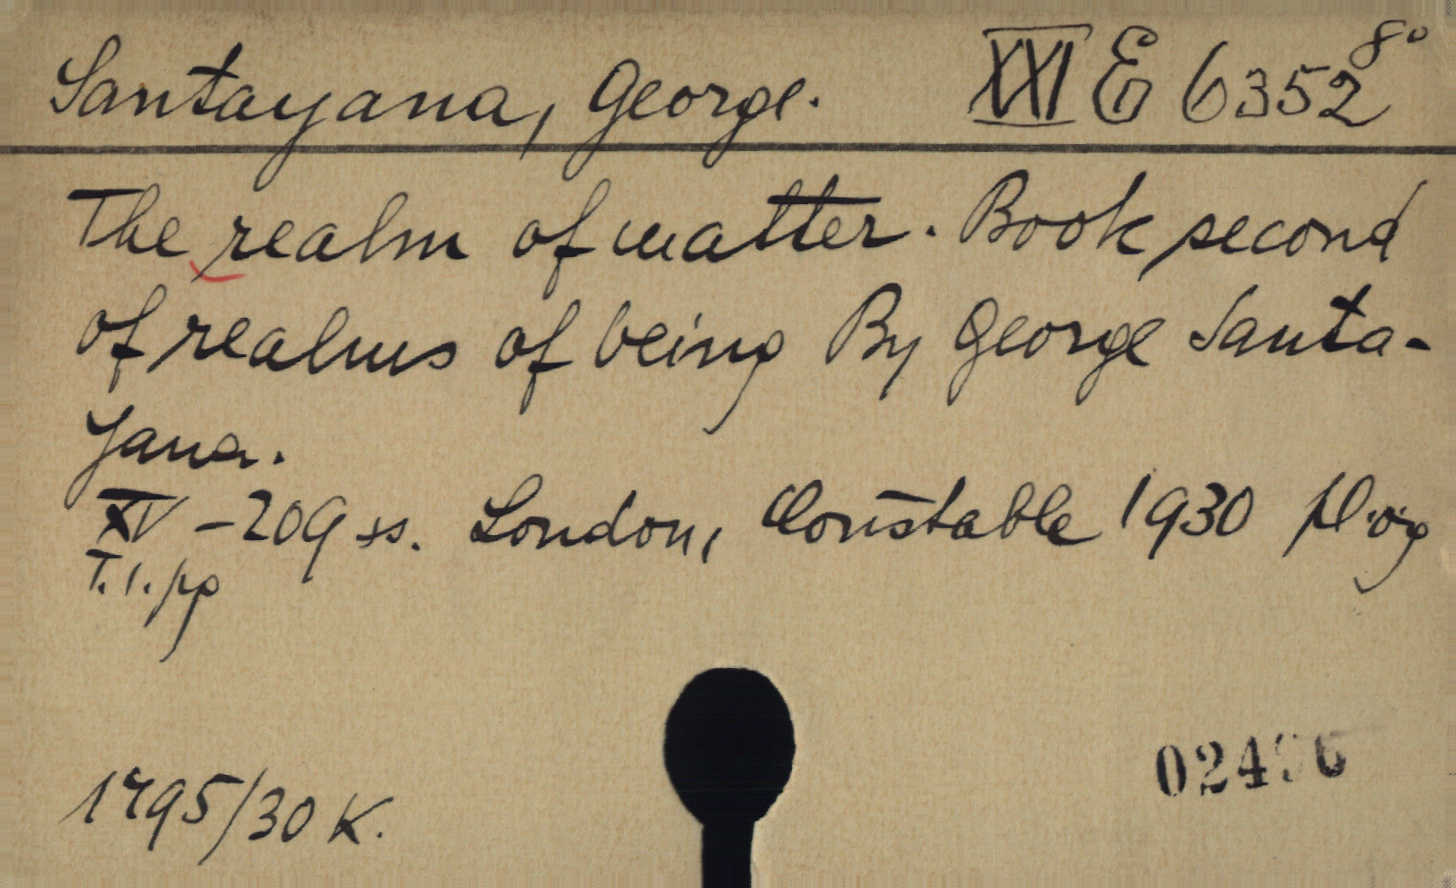 Santayana, George. XXI E 6352 8°
The realm of matter. Book second
of realms of being By George Santa-
yana.
XV - 209 ss. London, Constable 1930 pł.oryg
T.1.pp
1795/30 K.